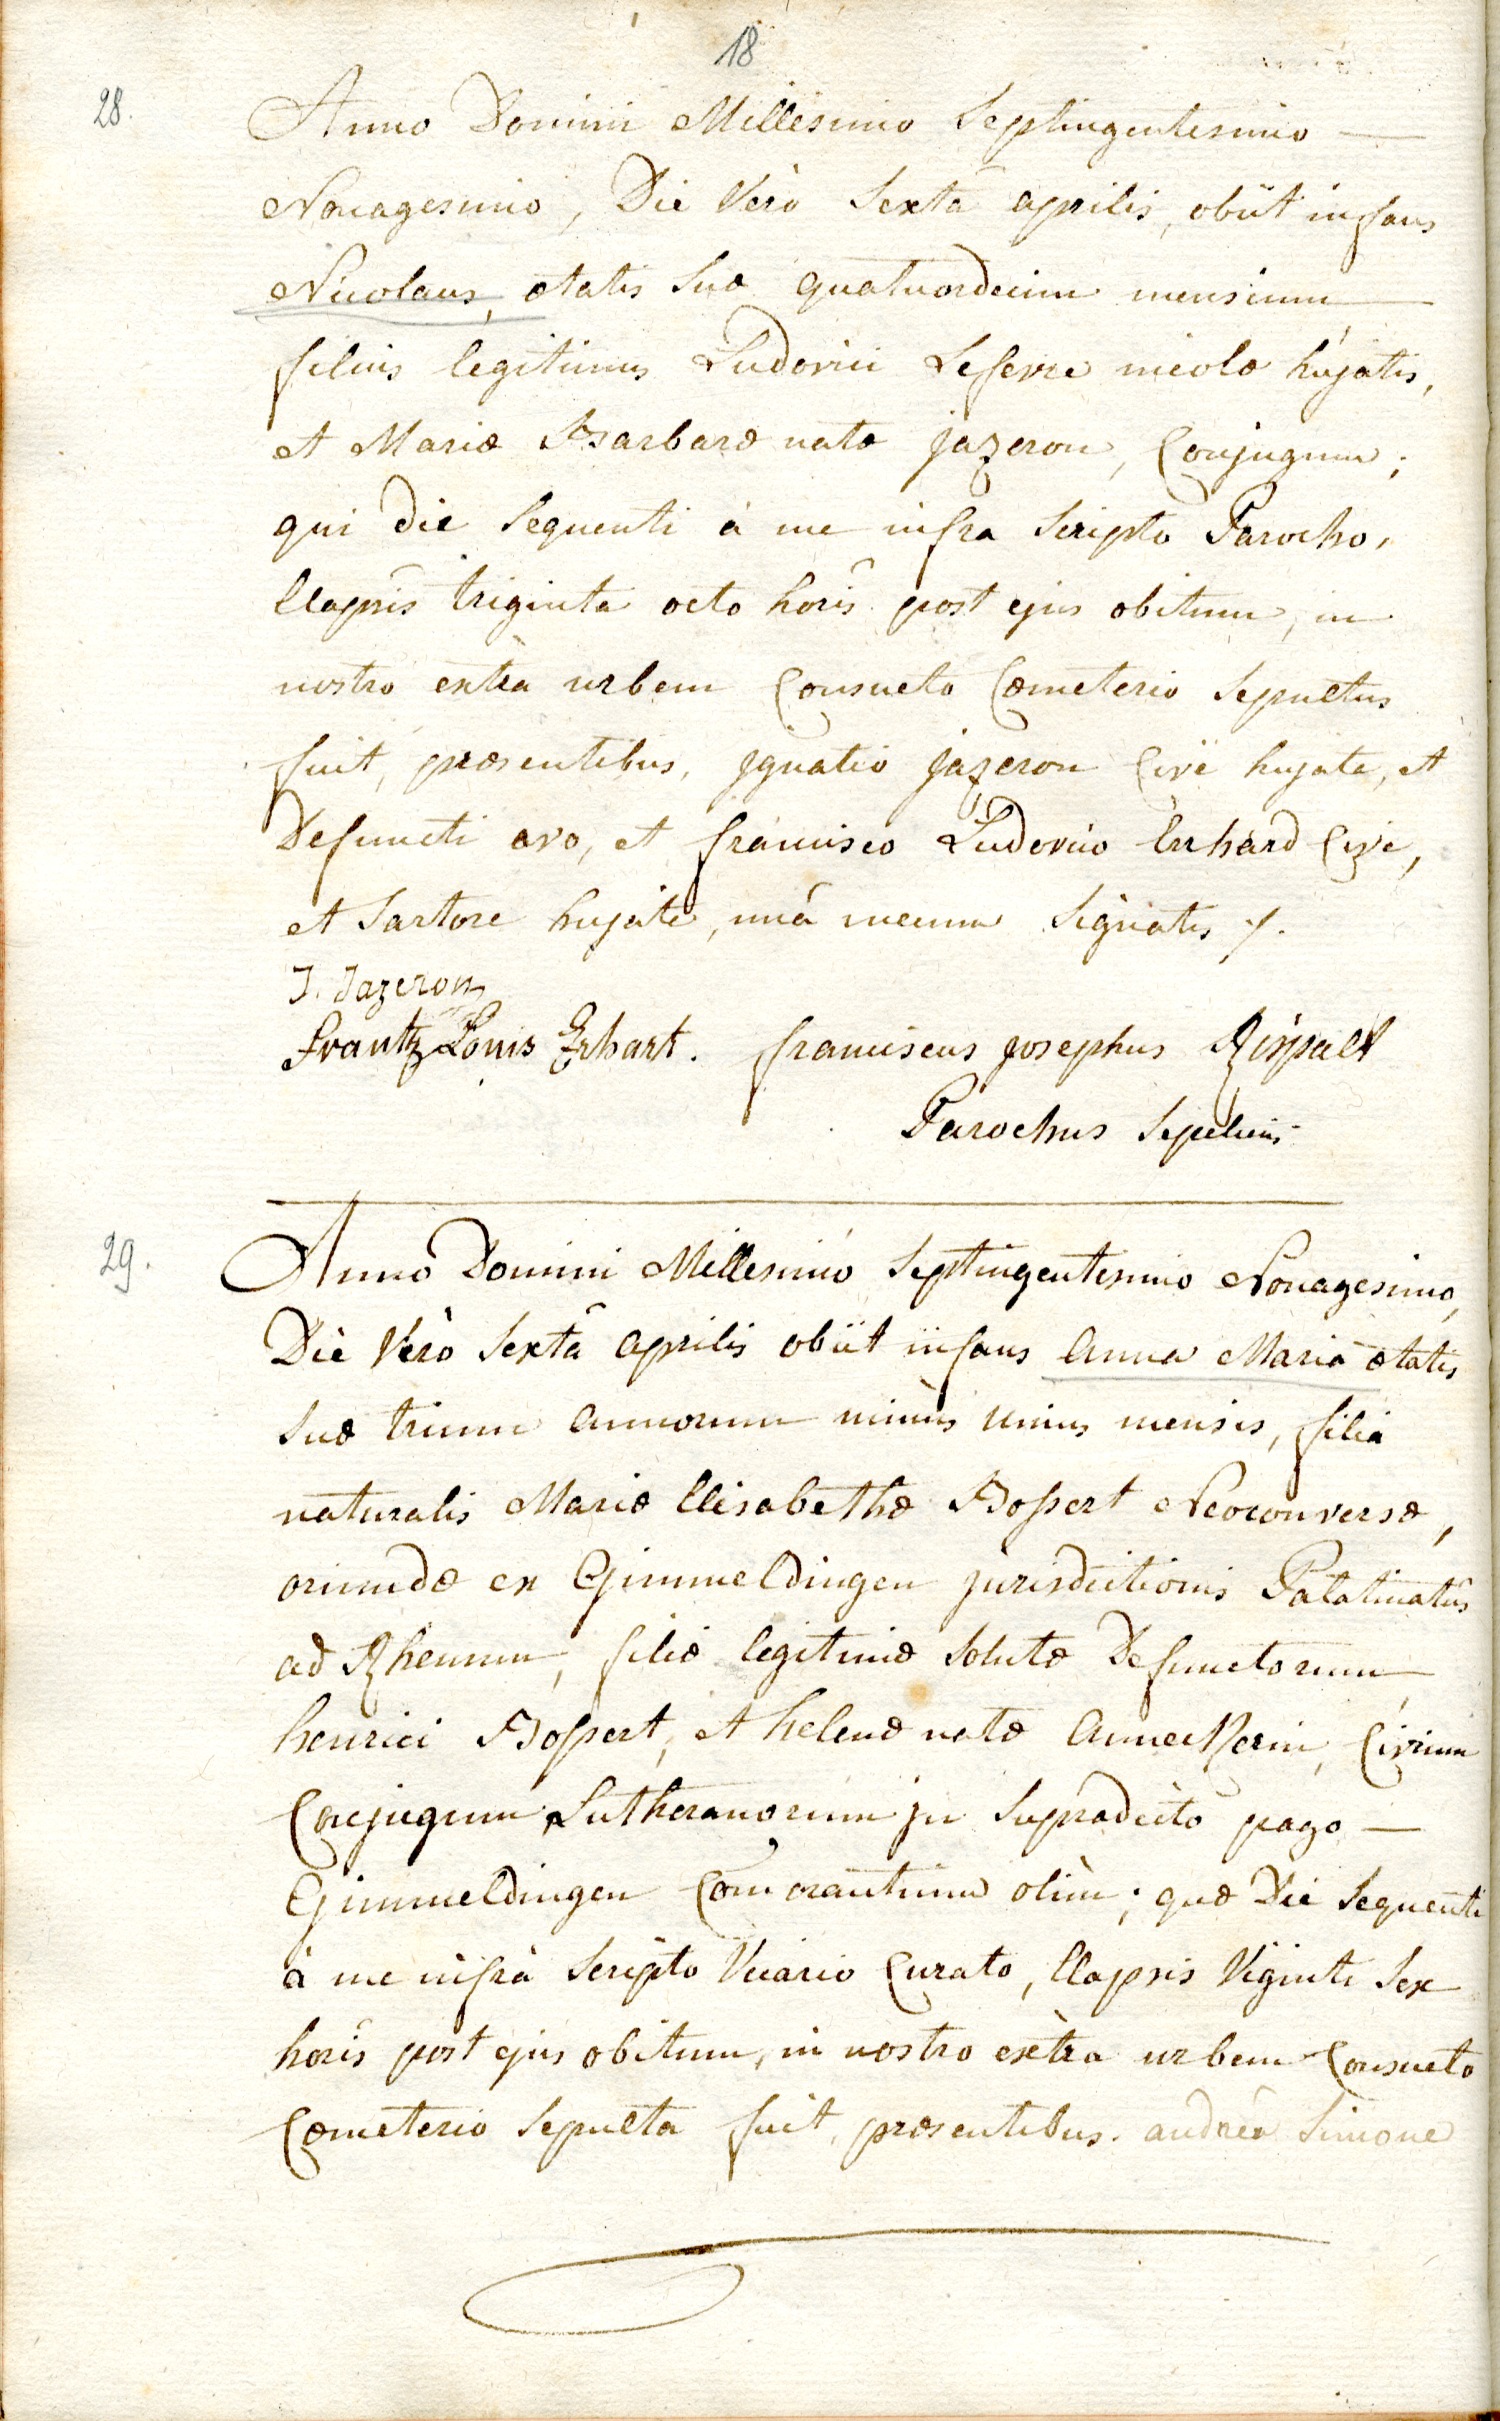 18
28.
Anno Domini Millesimo Septingentesimo —
Nonagesimo, Die Verò Sextâ aprilis, obiit infans
Nicolaus, ætatis suæ quatuordecim mensium —
filius legitimus Ludovici Lefevre incolæ hujatis,
et Mariæ Barbaræ natæ jazeron, Conjugum;
qui die sequenti à me infra scripto Parocho,
Elapsis triginta octo horis post ejus obitum, in
nostro extra urbem Consueto Cœmeterio sepultus
fuit, præsentibus, jgnatio jazeron Cive hujate, et
Defuncti avo, et francisco Ludovico Erhard Cive,
et Sartore hujate, unà mecum signatis /.
J. Jazeron
Frantz Louis Erhart. franciscus josephus Rispalt
Parochus sepeliens
29.
Anno Domini Millesimo Septingentesimo Nonagesimo,
Die Verò Sextâ aprilis obiit infans Anna Maria ætatis
suæ trium annorum minùs unius mensis, filia
naturalis Mariæ Elisabethæ Bossert Neoconversæ,
oriundæ ex Gimmeldingen jurisdictionis Palatinatûs
ad Rhenum, filiæ legitimæ solutæ Defunctorum
henrici Bossert, et helenæ natæ Annackerin, Civium
Conjugum Lutheranorum jn supradicto pago —
Gimmeldingen Commorantium olim; quæ Die sequenti
à me infrà scripto Vicario Curato, Elapsis Viginti sex
horis post ejus obitum, in nostro extra urbem Consueto
Cœmeterio sepulta fuit, præsentibus. andreâ Simone